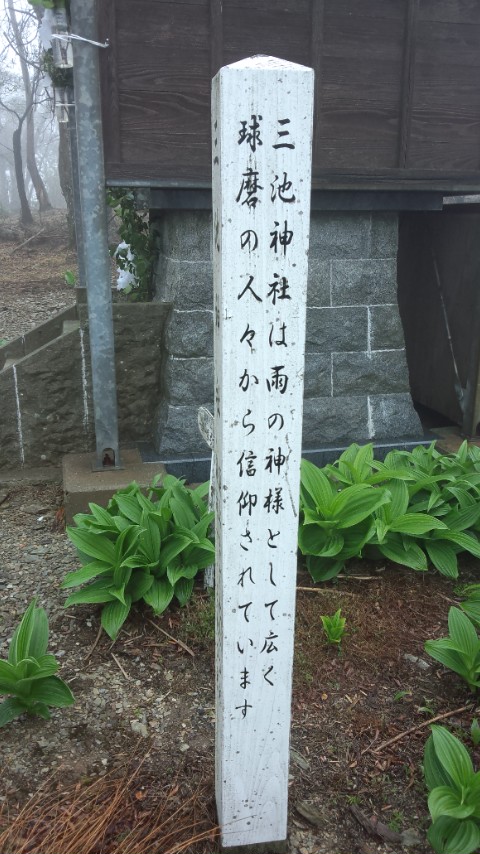 三池神社は雨の神様として広く
球磨の人々から信仰されています